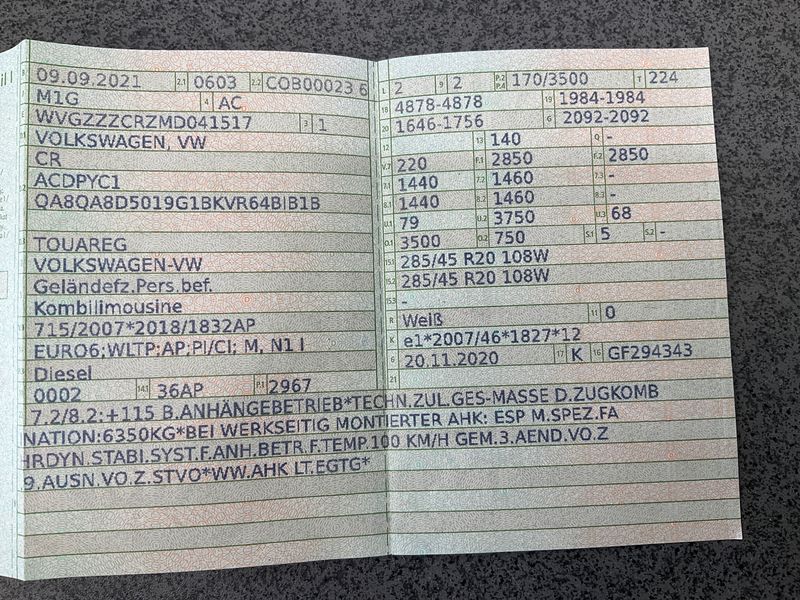 B 09.09.2021 2.1 0603 2.2 COB00023 6
M1G 4 AC
WVGZZZCRZMD041517 3 1
VOLKSWAGEN, VW
CR
ACDPYC1
QA8QA8D5019G1BKVR64BIB1B
TOUAREG
VOLKSWAGEN-VW
Geländefz.Pers.bef.
Kombilimousine
715/2007*2018/1832AP
EURO6;WLTP;AP;PI/CI; M, N1 I
Diesel
0002 14.1 36AP P.1 2967
L 2 9 2 P.2 P.4 170/3500 T 224
18 4878-4878 19 1984-1984
20 1646-1756 G 2092-2092
12 13 140 Q -
V.7 220 F.1 2850 F.2 2850
7.1 1440 7.2 1460 7.3 -
8.1 1440 8.2 1460 8.3 -
U.1 79 U.2 3750 U.3 68
O.1 3500 O.2 750 S.1 5 S.2 -
15.1 285/45 R20 108W
15.2 285/45 R20 108W
15.3 -
R Weiß 11 0
K e1*2007/46*1827*12
6 20.11.2020 17 K 16 GF294343
21
7.2/8.2:+115 B.ANHÄNGEBETRIEB*TECHN.ZUL.GES-MASSE D.ZUGKOMB
NATION:6350KG*BEI WERKSEITIG MONTIERTER AHK: ESP M.SPEZ.FA
HRDYN.STABI.SYST.F.ANH.BETR.F.TEMP.100 KM/H GEM.3.AEND.VO.Z
9.AUSN.VO.Z.STVO*WW.AHK LT.EGTG*